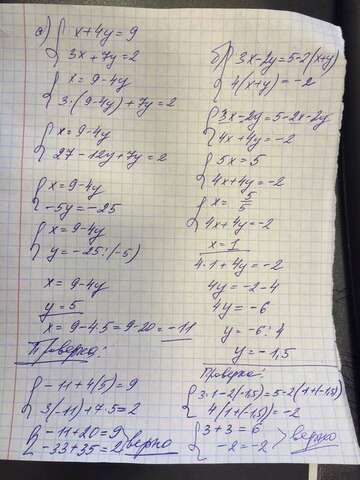 а) { x + 4y = 9
3x + 7y = 2
{ x = 9 - 4y
3·(9-4y) + 7y = 2
{ x = 9 - 4y
27 - 12y + 7y = 2
{ x = 9 - 4y
-5y = -25
{ x = 9 - 4y
y = -25:(-5)
x = 9 - 4y
y = 5
x = 9 - 4·5 = 9 - 20 = -11
Проверка:
{ -11 + 4(5) = 9
3(-11) + 7·5 = 2
{ -11 + 20 = 9
-33 + 35 = 2 } верно
б) { 3x - 2y = 5 - 2(x+y)
4(x+y) = -2
{ 3x - 2y = 5 - 2x - 2y
4x + 4y = -2
{ 5x = 5
4x + 4y = -2
{ x = 5/5
4x + 4y = -2
x = 1
4·1 + 4y = -2
4y = -2 - 4
4y = -6
y = -6:4
y = -1,5
Проверка:
{ 3·1 - 2(-1,5) = 5 - 2(1 + (-1,5))
4(1 + (-1,5)) = -2
{ 3 + 3 = 6
-2 = -2 } верно